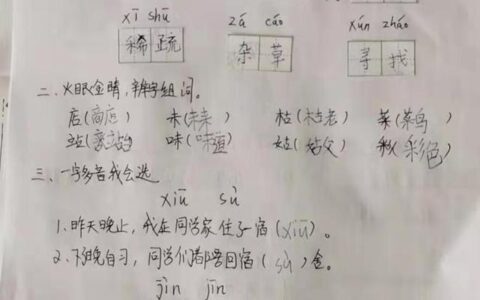 xī shū zá cǎo xún zhǎo
稀疏 杂草 寻找
二、火眼金睛,辨字组词。
店(商店) 未(未来) 枯(枯老) 菜(菜鸟)
站(车站) 味(味道) 姑(姑父) 彩(彩色)
三、一字多音我会选
xiǔ sù
1、昨天晚上,我在同学家住了一宿(xiǔ)。
2、下晚自习,同学们都要回宿(sù)舍。
jìn jīn